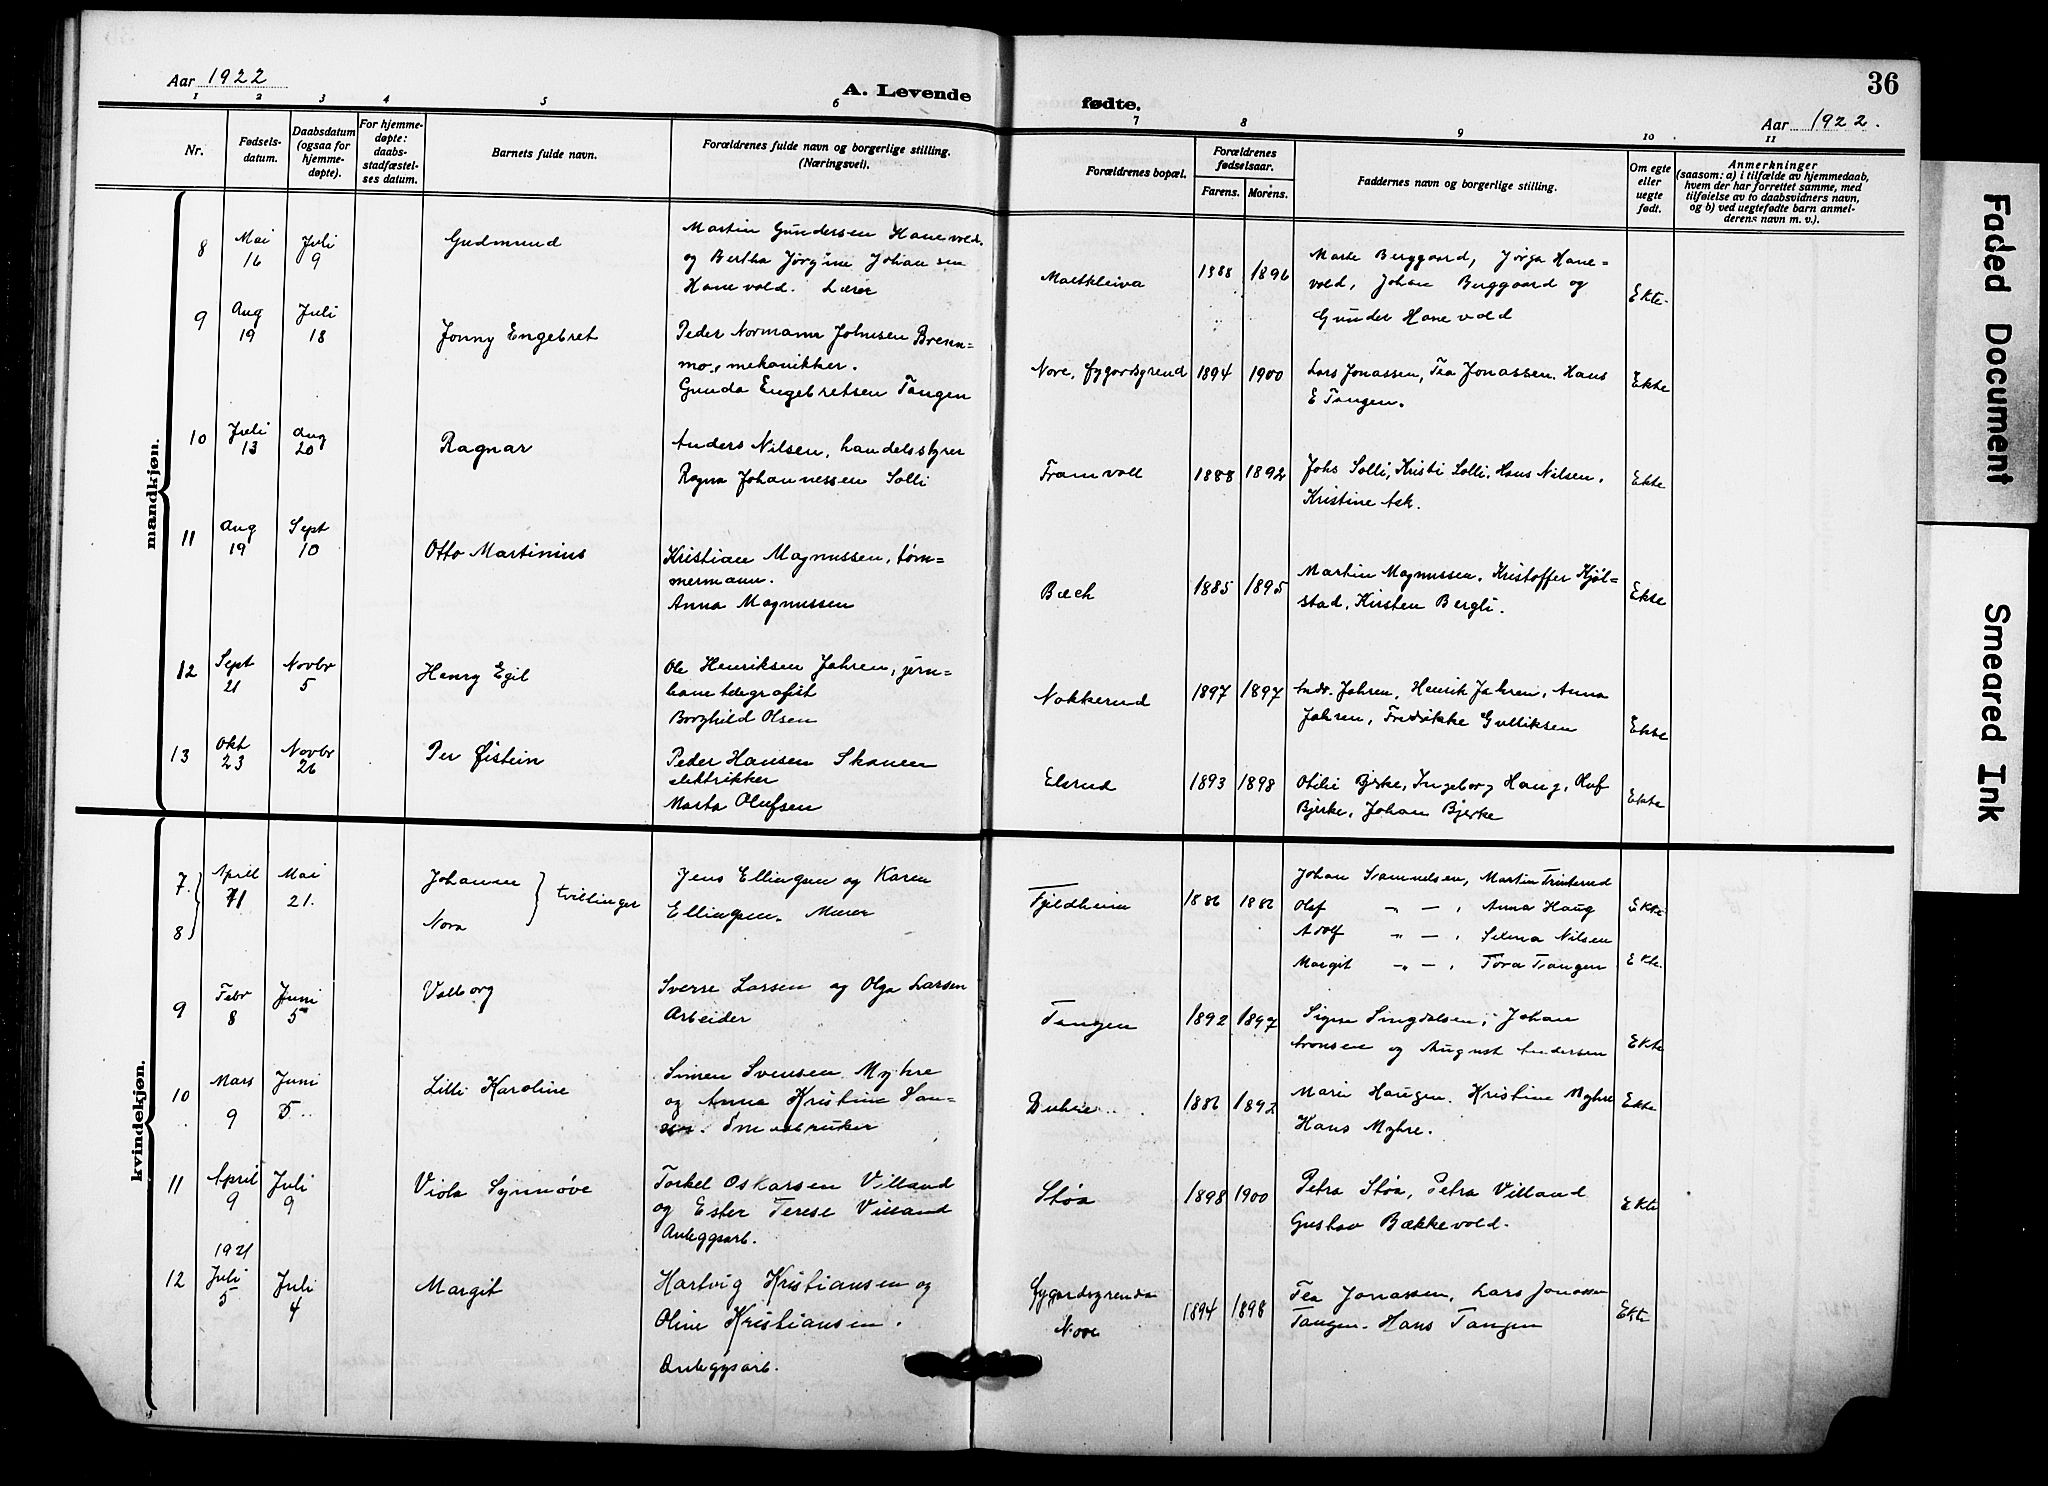 Aar 1922
A. Levende fødte.
36
Aar 1922.
1 2 3 4 5 6 7 8 9 10 11
Nr.
Fødsels-
datum.
Daabsdatum
(ogsaa for
hjemme-
døpte).
For hjemme-
døpte:
daabs-
stadfæstel-
ses datum.
Barnets fulde navn.
Forældrenes fulde navn og borgerlige stilling.
(Næringsvei).
Forældrenes bopæl.
Forældrenes
fødselsaar.
Farens. Morens.
Faddernes navn og borgerlige stilling.
Om egte
eller
uegte
født.
Anmerkninger
(saasom: a) i tilfælde av hjemmedaab,
hvem der har forrettet samme, med
tilføielse av to daabsvidners navn,
og b) ved uegtefødte barn anmel-
derens navn m. v.).
mandkjøn.
8 Mai 16 Juli 9 Gudmund
Martin Gundersen Hanevold.
og Bertha Jørgine Johansen
Hanevold. Lærer
1888 1896
Marte Berggaard, Jørga Hane-
vold, Johan Berggaard og
Gunder Hanevold
Ekte
9 Aug 19 Juli 18 Jonny Engebret
Peder Normann Johnsen Brenn=
mo, mekanikker.
Gunda Engebretsen Tangen
Nore, Gygardsgrend 1894 1900
Lars Jonassen, Tea Jonassen. Hans
E Tangen.
Ekte
10 Juli 13 Aug 20 Ragnar
Anders Nilsen, handelsstyrer
Ragna Johannessen Solli
Framvoll 1888 1892
Johs Solli, Kristi Solli, Hans Nilsen,
Kristine Ask.
Ekte
11 Aug 19 Sept 10 Otto Martinius
Kristian Magnussen, tøm=
mermann.
Anna Magnussen
Bæch 1885 1895
Martin Magnussen, Kristoffer Kjøl=
stad, Kirsten Bergli.
Ekte
12 Sept 21 Novbr 5 Henry Egil
Ole Henriksen Jahren, jern-
banetelegrafist
Borghild Olsen
Nakkerud 1897 1897
Andr. Jahren, Henrik Jahren, Anna
Jahren, Fredrikke Gulliksen
Ekte
13 Okt 23 Novbr 26 Per Øistein
Peder Hansen Skauen
elektrikker
Marta Olufsen
Elsrud 1893 1898
Otilie Bjerke, Ingeborg Haug, Oluf
Bjerke, Johan Bjerke
Ekte
kvindekjøn.
7. April 11 Mai 21. Johanne
8 Nora
tvillinger
Jens Ellingsen og Karen
Ellingsen. Murer
Fjeldheim 1886 1886
Johan Samuelsen, Martin Trinterud
Olaf „ — , Anna Haug
Adolf „ — , Selma Nilsen
Margit „ — , Tora Tangen
Ekte
Ekte
9 Febr 8 Juni 5 Valborg
Sverre Larsen og Olga Larsen
Arbeider
Tangen 1892 1897
Signe Singdalsen, Johan
Aronsen og August Andersen
Ekte
10 Mars 9 Juni 5. Lilli Karoline
Simen Svensen Myhre
og Anna Kristine Han-
sen. Småbruker
1886 1892
Marie Haugen. Kristine Myhre
Hans Myhre.
Ekte
11 April 9 Juli 9 Viola Synnøve
Torkel Oskarsen Villand
og Ester Terese Villand
Anleggsarb.
Støa 1898 1900
Petra Støa, Petra Villand
Gustav Bækkevold.
Ekte
1921
12 Juli 5 Juli 4 Margit
Hartvig Kristiansen og
Oline Kristiansen.
Anleggsarb.
Gygardsgrenda
Nore
1894 1898
Tea Jonassen, Lars Jonassen
Tangen. Hans Tangen
Ekte
Faded Document
Smeared Ink